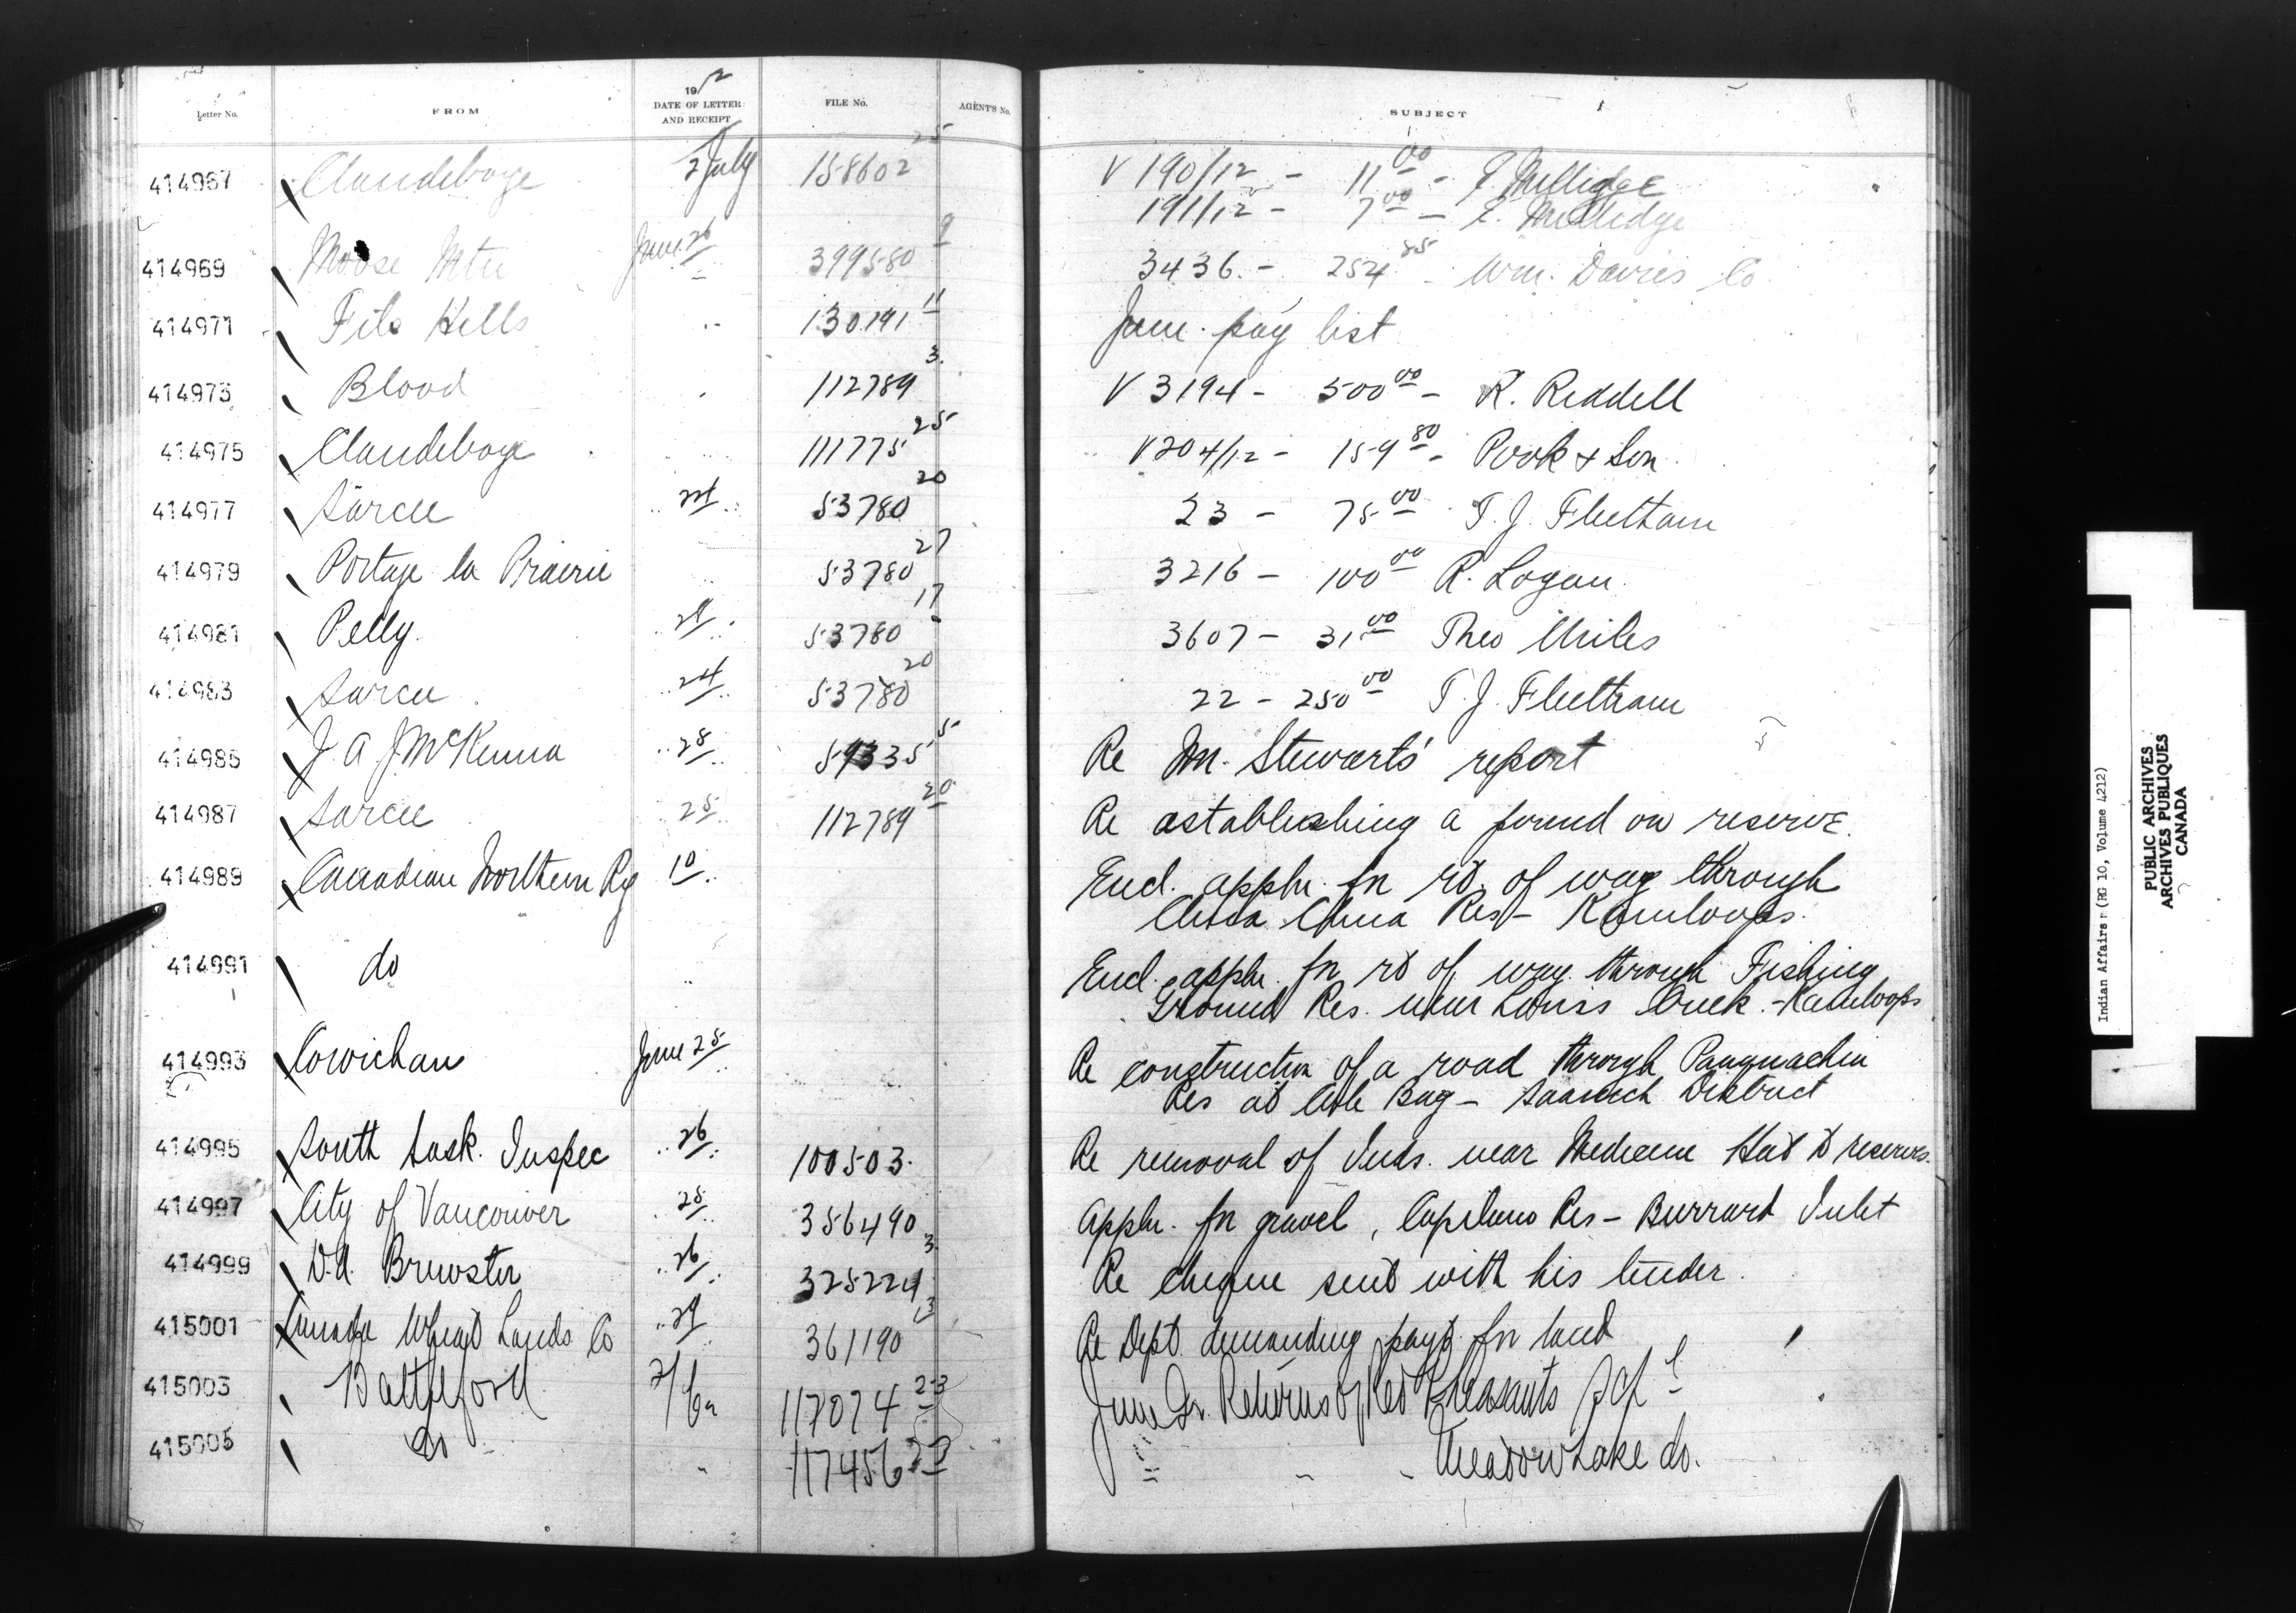 Letter No. FROM 1912 DATE OF LETTER AND RECEIPT FILE No. AGENT'S No. SUBJECT
414967 Clandeboye 2 July 158602 25 V 190/12 - 11 00 - E. Milledge
191/12 - 7 00 - E. Milledge
414969 Moose Mtn June 26 399580 9 3436 - 254 85 - Wm. Davies Co
414971 File Hills " 130191 11 June pay list
414973 Blood " 112789 3 V 3194 - 500 00 - R. Riddell
414975 Clandeboye " 111775 25 V 204/12 - 159 80 - Pook & Son
414977 Sarcee " 24 " 53780 20 23 - 75 00 - T. J. Fleetham
414979 Portage la Prairie " 53780 27 3216 - 100 00 R. Logan
414981 Pelly " 29 " 53780 17 3607 - 31 00 Theo Miles
414983 Sarcee " 24 " 53780 20 22 - 250 00 T. J. Fleetham
414985 J. A. J. McKenna " 28 59335 5 Re Mr. Stewart's report
414987 Sarcee 25 112789 20 Re establishing a pound on reserve.
414989 Canadian Northern Ry 10 Encl. appln. for rt. of way through
Chua Chua Res - Kamloops.
414991 do " Encl. appln. for rt of way through Fishing
Ground Res. near Louis Creek - Kamloops
414993 Cowichan June 25 Re construction of a road through Pauquachin
Res at Cole Bay - Saanich District
414995 South Sask. Inspec " 26 100503 Re removal of Inds. near Medicine Hat to reserves.
414997 City of Vancouver " 25 356490 Appln. for gravel, Capilano Res - Burrard Inlet
414999 Brewster " 26 325224 3 Re cheque sent with his tender.
415001 Canada Wheat Lands Co " 29 361190 3 Re Dept. demanding payt. for land
415003 Battleford 117074 23 June Qr. Returns of Red Pheasants
415005 do " 117456 23 " " " Meadow Lake do.
Indian Affairs (RG 10, Volume 4212)
PUBLIC ARCHIVES
ARCHIVES PUBLIQUES
CANADA